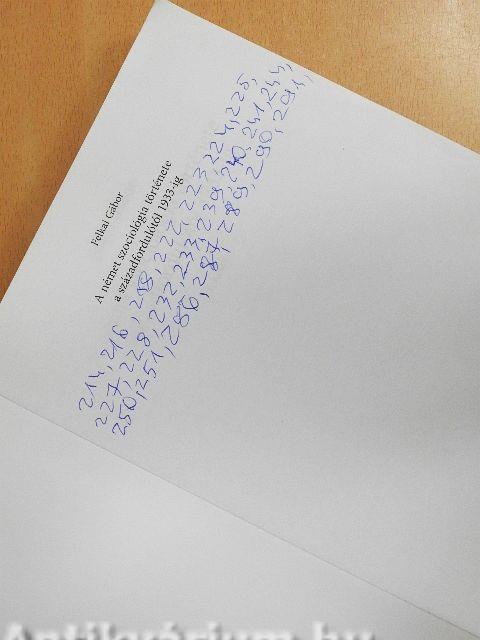 Felkai Gábor
A német szociológia története
a századfordulótól 1933-ig
214, 216, 218, 222, 223, 224, 225,
227, 228, 232, 233, 239, 240, 241, 244,
250, 251, 286, 287, 289, 290, 291,
Antikvárium.hu